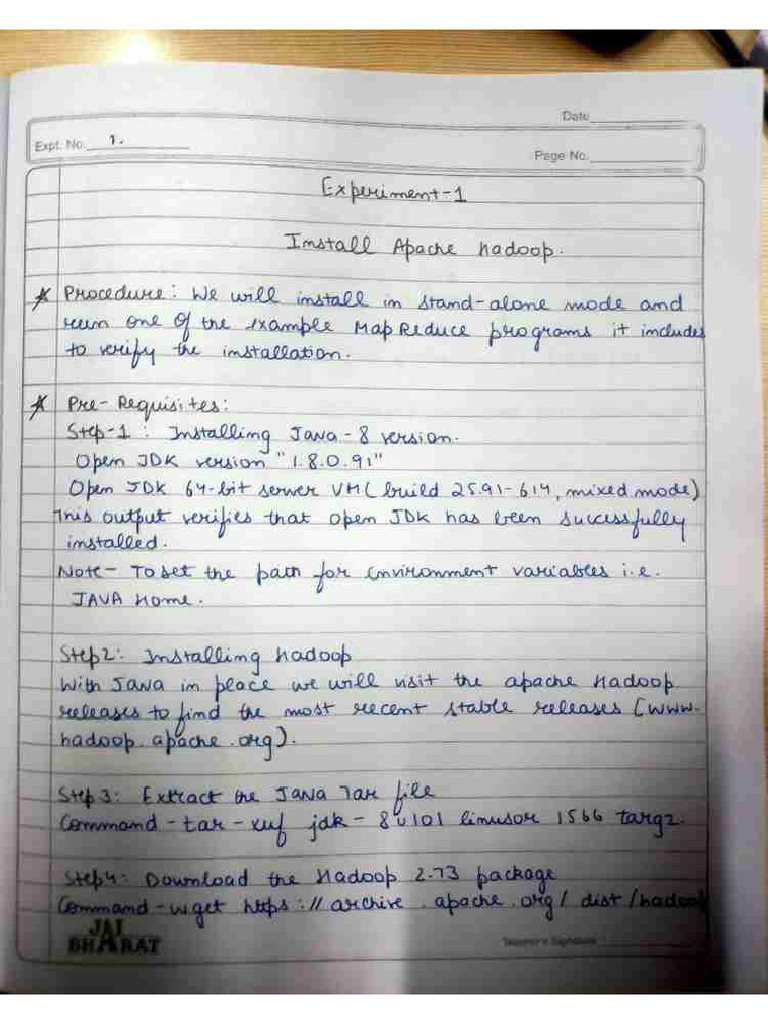 Date
Expt. No. 1.
Page No.
Experiment-1
Install Apache Hadoop.
* Procedure: We will install in stand-alone mode and
run one of the example MapReduce programs it includes
to verify the installation.
* Pre-Requisites:
Step-1: Installing Java-8 version.
Open JDK version "1.8.0.91"
Open JDK 64-bit server VM (build 25.91-614, mixed mode)
This output verifies that open JDK has been successfully
installed.
Note- To set the path for environment variables i.e.
JAVA Home.
Step2: Installing Hadoop
With Java in place we will visit the apache Hadoop
releases to find the most recent stable releases (www.
hadoop.apache.org).
Step 3: Extract the JAVA Tar file
Command - tar - xuf jdk - 8u101 linusor 1566 targz.
Step4: Download the Hadoop 2.73 package
Command - wget https://archive.apache.org/dist/hadoop
JAI
BHARAT
Teacher's Signature